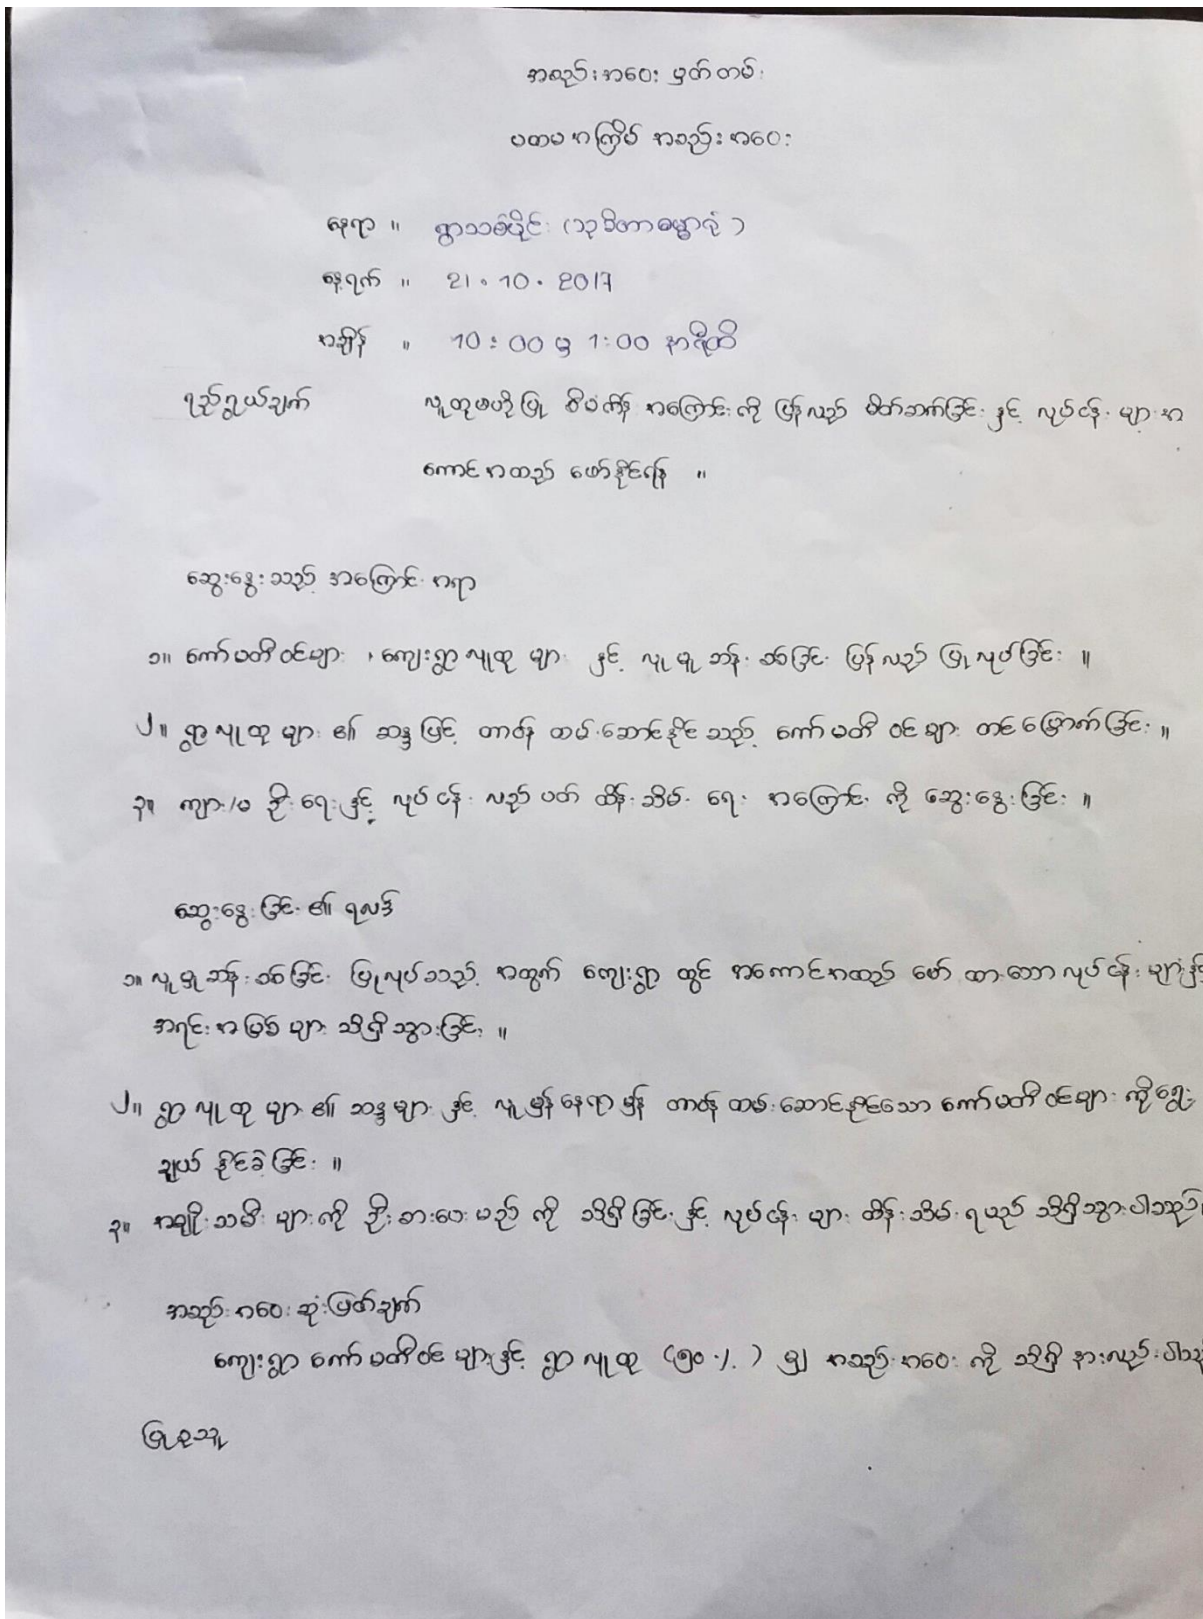 အစည်းအဝေး မှတ်တမ်း
ပထမအကြိမ် အစည်းအဝေး
နေရာ ။ ရွာသစ်ပိုင်း (သုခိတာဓမ္မာရုံ)
နေ့ရက် ။ 21.10.2017
အချိန် ။ 10:00 မှ 1:00 နာရီထိ
ရည်ရွယ်ချက် လူထုဗဟိုပြု စီမံကိန်း အကြောင်းကို ပြန်လည် မိတ်ဆက်ခြင်းနှင့် လုပ်ငန်းများအ
ကောင်အထည် ဖော်နိုင်ရန် ။
ဆွေးနွေးသည့် အကြောင်းအရာ
၁။ ကော်မတီဝင်များ ၊ ကျေးရွာလူထုများ နှင့် လူမှုဆန်းစစ်ခြင်း ပြန်လည် ပြုလုပ်ခြင်း ။
၂။ ရွာလူထုများ ၏ ဆန္ဒဖြင့် တာဝန် ထမ်းဆောင်နိုင်သည့် ကော်မတီဝင်များ တင်မြှောက်ခြင်း ။
၃။ ကျား/မ ဦးရေနှင့် လုပ်ငန်း လည်ပတ် ထိန်းသိမ်းရေး အကြောင်း ကို ဆွေးနွေးခြင်း ။
ဆွေးနွေးခြင်း ၏ ရလဒ်
၁။ လူမှုဆန်းစစ်ခြင်း ပြုလုပ်သည့် အတွက် ကျေးရွာ တွင် အကောင်အထည် ဖော် ထားသော လုပ်ငန်းများနှင့်
အရင်းအမြစ်များ သိရှိသွားခြင်း ။
၂။ ရွာလူထုများ ၏ ဆန္ဒများ နှင့် လူမှန်နေရာမှန် တာဝန် ထမ်းဆောင်နိုင်သော ကော်မတီဝင်များ ကိုရွေး
ချယ် နိုင်ခဲ့ခြင်း ။
၃။ အမျိုးသမီး များကို ဦးစားပေးမည် ကို သိရှိခြင်းနှင့် လုပ်ငန်းများ ထိန်းသိမ်းရမည် သိရှိသွားပါသည်။
အစည်းအဝေးဆုံးဖြတ်ချက်
ကျေးရွာ ကော်မတီဝင်များနှင့် ရွာလူထု (၅၀%) မျှ အစည်းအဝေး ကို သိရှိ နားလည်ပါသ
ပြုစုသူ